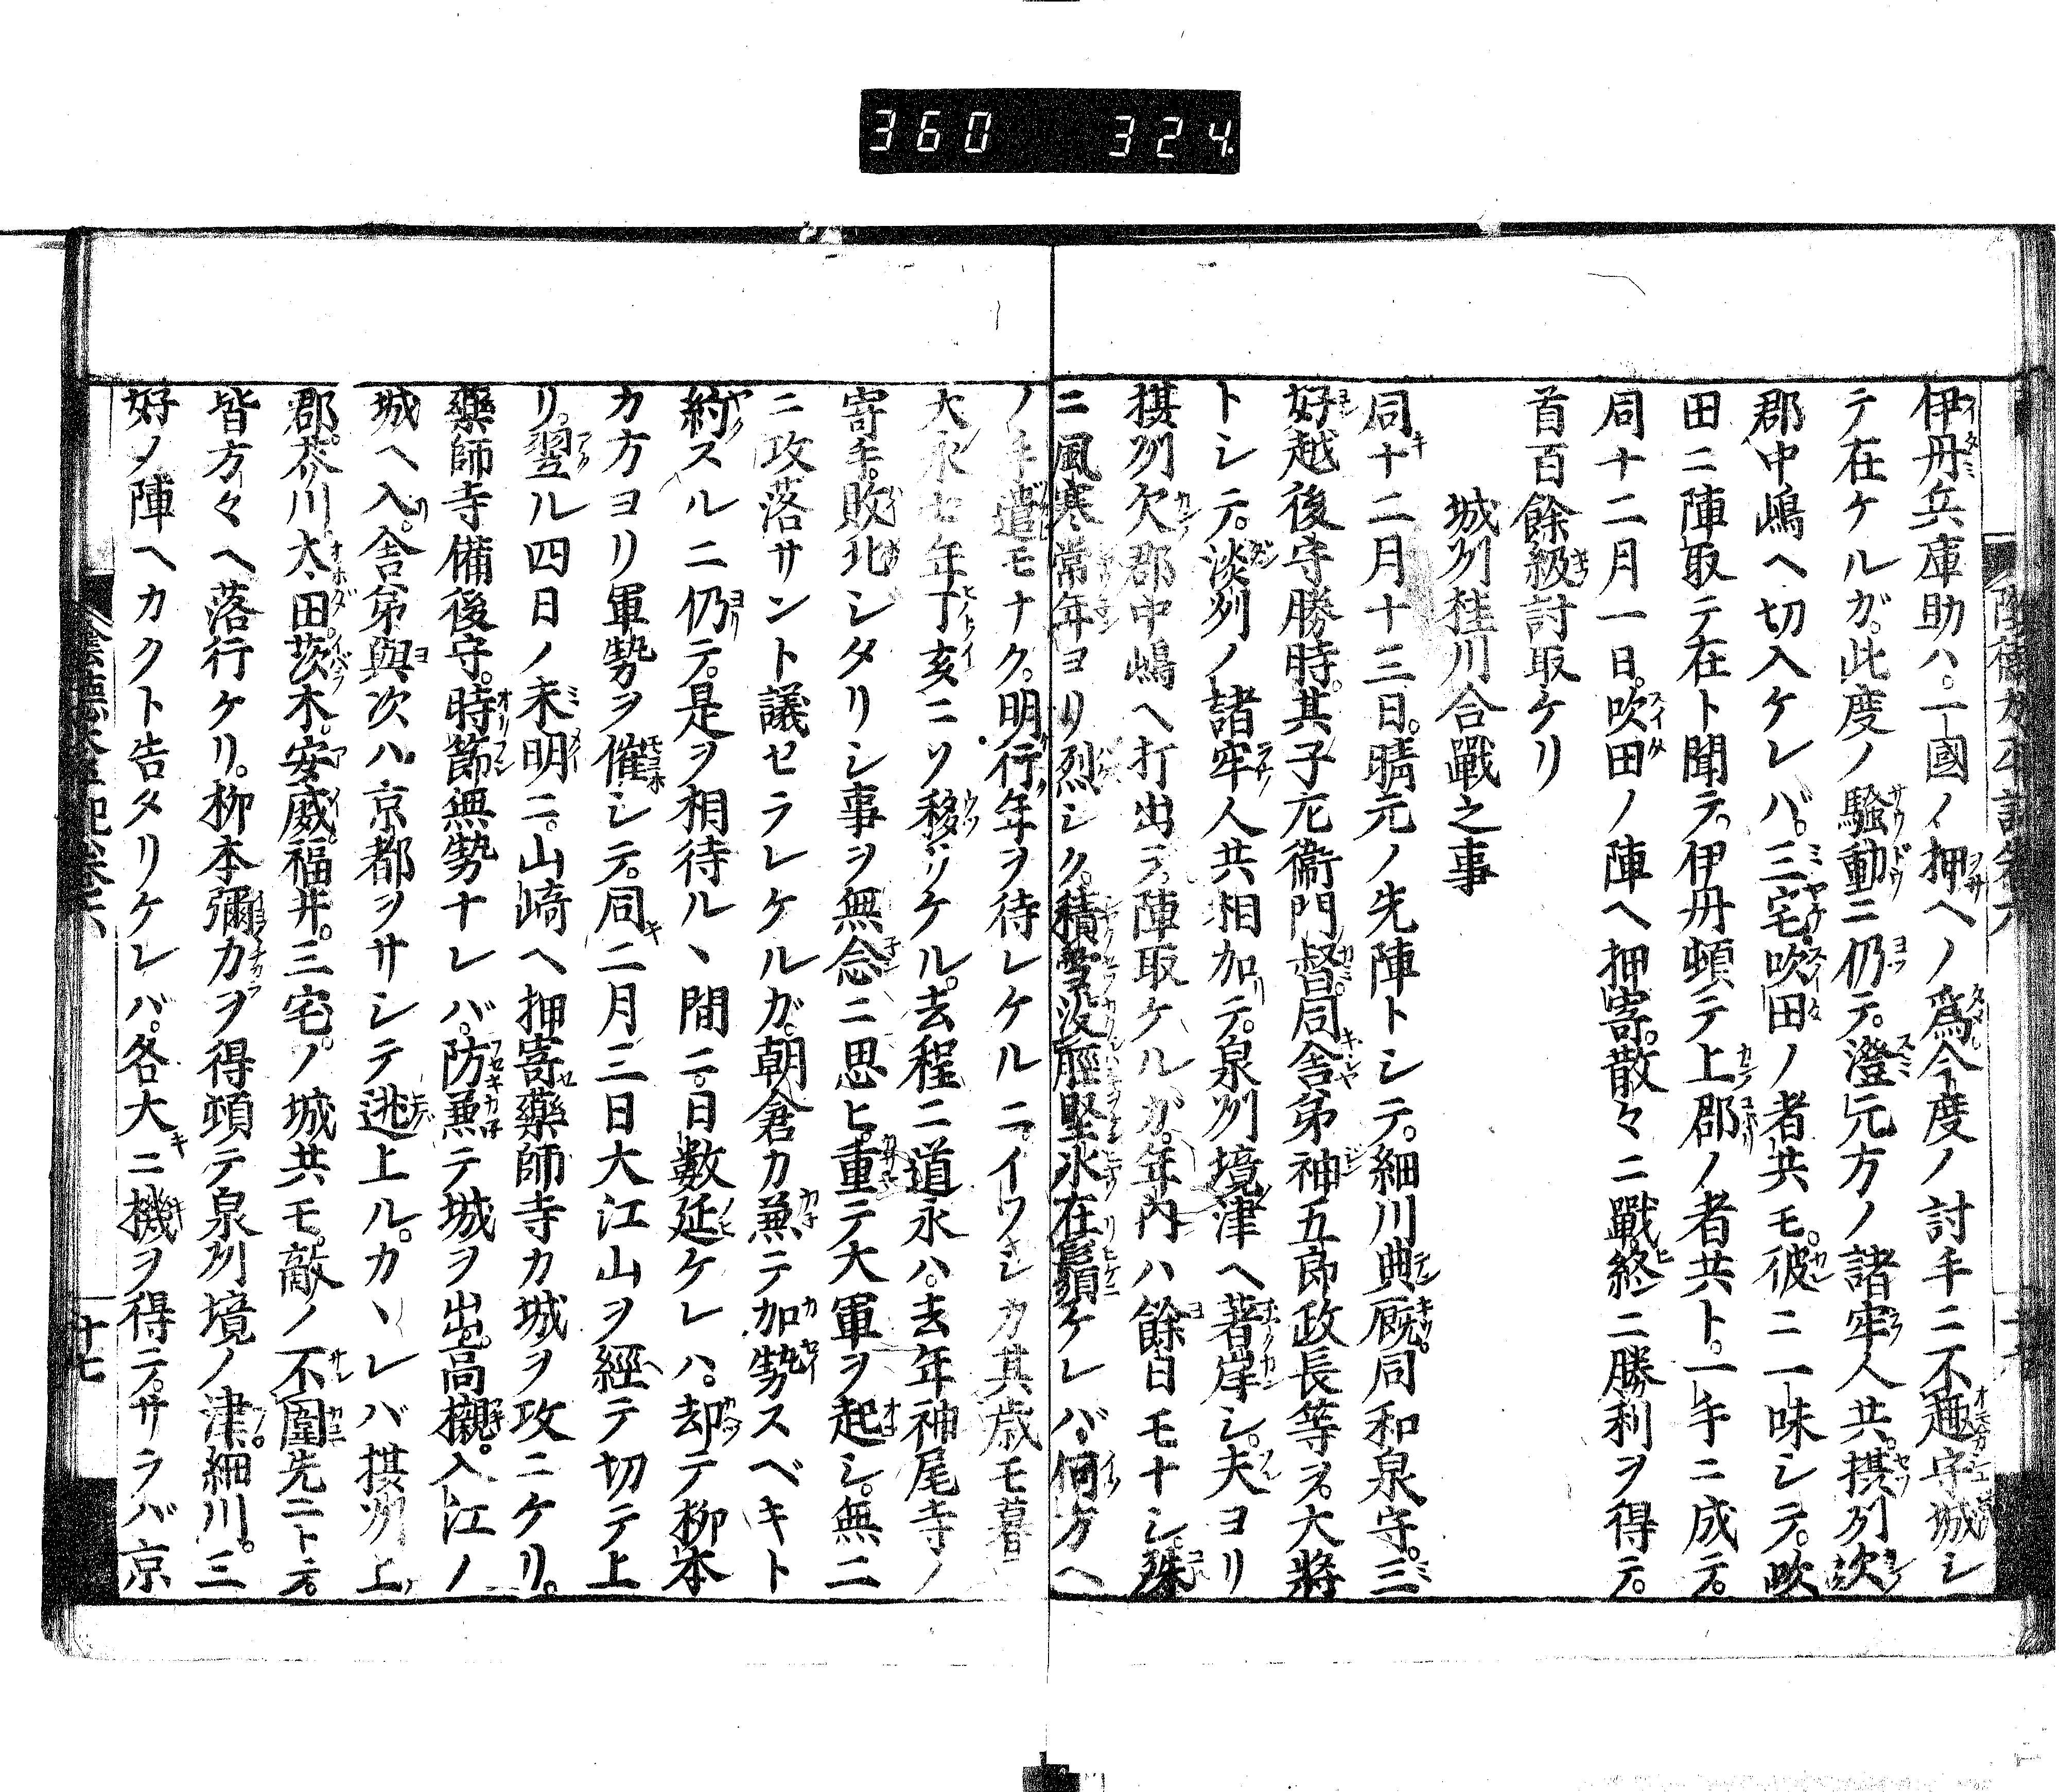 360 324.
伊丹兵庫助ハ。一國ノ押ヘノ爲今度ノ討手ニ不趣守城シ
テ在ケルガ。此度ノ騒動ニ仍テ。澄元方ノ諸牢人共。摂州欠
郡中嶋ヘ切入ケレバ。三宅。吹田ノ者共モ。彼ニ一味シテ。吹
田ニ陣取テ在ト聞テ。伊丹頓テ上郡ノ者共ト。一手ニ成テ。
同十二月一日。吹田ノ陣ヘ押寄。散々ニ戰終ニ勝利ヲ得テ。
首百餘級討取ケリ
城州桂川合戰之事
同十二月十三日。晴元ノ先陣トシテ。細川典厩。同和泉守。三
好越後守勝時。其子左衞門督。同舎弟神五郎政長等ヲ。大將
トシテ。淡州ノ諸牢人共相加テ。泉州境津ヘ著岸シ。夫ヨリ
摂州欠郡中嶋ヘ打出テ。陣取ケルガ。年内ハ餘日モナシ。殊
ニ風寒常年ヨリ烈シク。積雪没脛堅氷在鬚ケレバ、何方ヘ
ノ手遣モナク。明行年ヲ待レケルニ。イツシカ其歳モ暮
大永七年丁亥ニソ移リケル。去程ニ道永ハ。去年神尾寺ノ
寄手。敗北シタリシ事ヲ無念ニ思ヒ。重テ大軍ヲ起シ。無二
ニ攻落サント議セラレケルガ。朝倉カ兼テ加勢スベキト
約スルニ仍テ。是ヲ相待ル丶間ニ。日數延ケレハ。却テ柳本
カ方ヨリ軍勢ヲ催シテ。同二月三日大江山ヲ經テ切テ上
リ。翌ル四日ノ未明ニ。山崎ヘ押寄藥師寺カ城ヲ攻ニケリ。
藥師寺備後守。時節無勢ナレバ。防兼テ城ヲ出。高槻。入江ノ
城ヘ入。舎弟與次ハ京都ヲサシテ逃上ル。カ丶レバ摂州上
郡。芥川。太田。茨木。安威。福井。三宅。ノ城共モ。敵ノ不圍先ニト云。
皆方々ヘ落行ケリ。柳本彌カヲ得頓テ泉州境ノ津。細川。三
好ノ陣ヘカクト告タリケレバ。各大ニ機ヲ得テ。サラバ京
十七